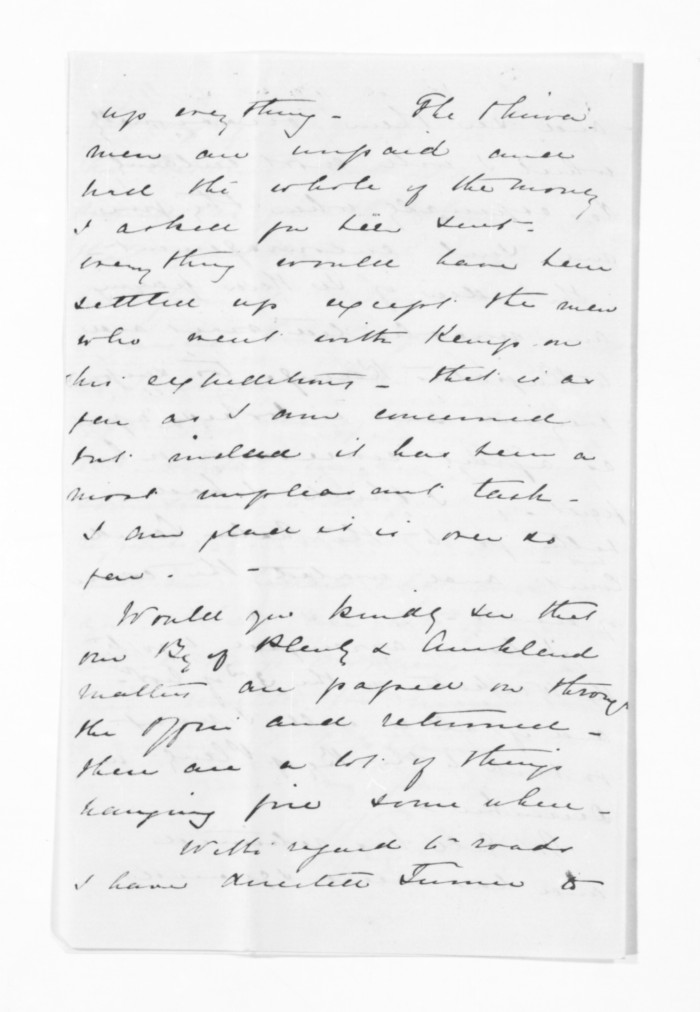 up everything - The
men are unpaid and
had the whole of the money
I asked for been sent -
everything would have been
settled up except the men
who went with Kemp on
his expeditions - that is as
far as I am concerned
but indeed it has been a
most unpleasant task -
I am glad it is over so
far. -
Would you kindly see that
our By of Plenty & Auckland
matters are passed on through
the office and returned -
there are a lot of things
hanging fire some where -
With regard to roads
I have directed Turner to